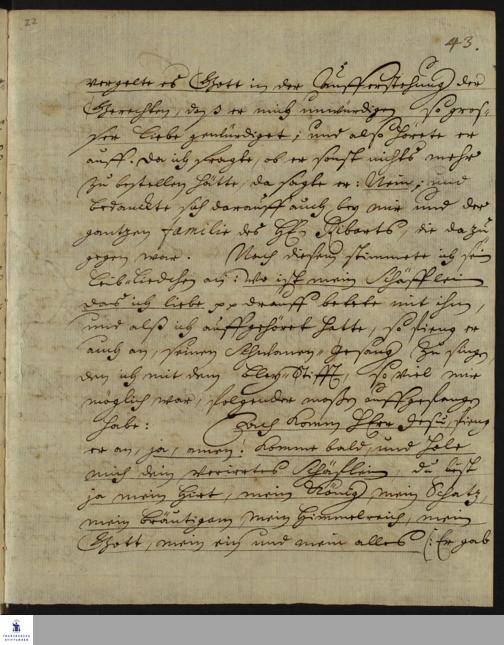 22
43.
vergelte es Gott in der Aufferstehung der
Gerechten, daß er mich unwürdigen so gros-
ser Liebe gewürdiget; und also hörete er
auff. Da ich fragte, ob er sonst nichts mehr
zu bestellen hätte, da sagte er: Nein; und
bedanckte sich darauff auch bey mir und der
gantzen familie des HEn, die da zu
gegen war. Nach diesem stimmete ich sein
Leib-Liedchen an: Wo ist mein Schäfflein
das ich liebe pp drauff betete mit ihm,
und alß ich auffgehöret hatte, so fieng er
auch an, seinen Schwanen-Gesang zu singen
den ich mit dem Bley-Stifft, so viel mir
möglich war, folgender maßen auffgefangen
habe: Ach komm HErr Jesu, fieng
er an, ja, amen! komme bald, und hole
mich dein verirrtes Schäflein, du bist
ja mein Hirt, mein König mein Schatz,
mein Bräutigam mein Himmelreich, mein
Gott, mein ein und mein alles (: Er gab
FRANCKESCHE
STIFTUNGEN